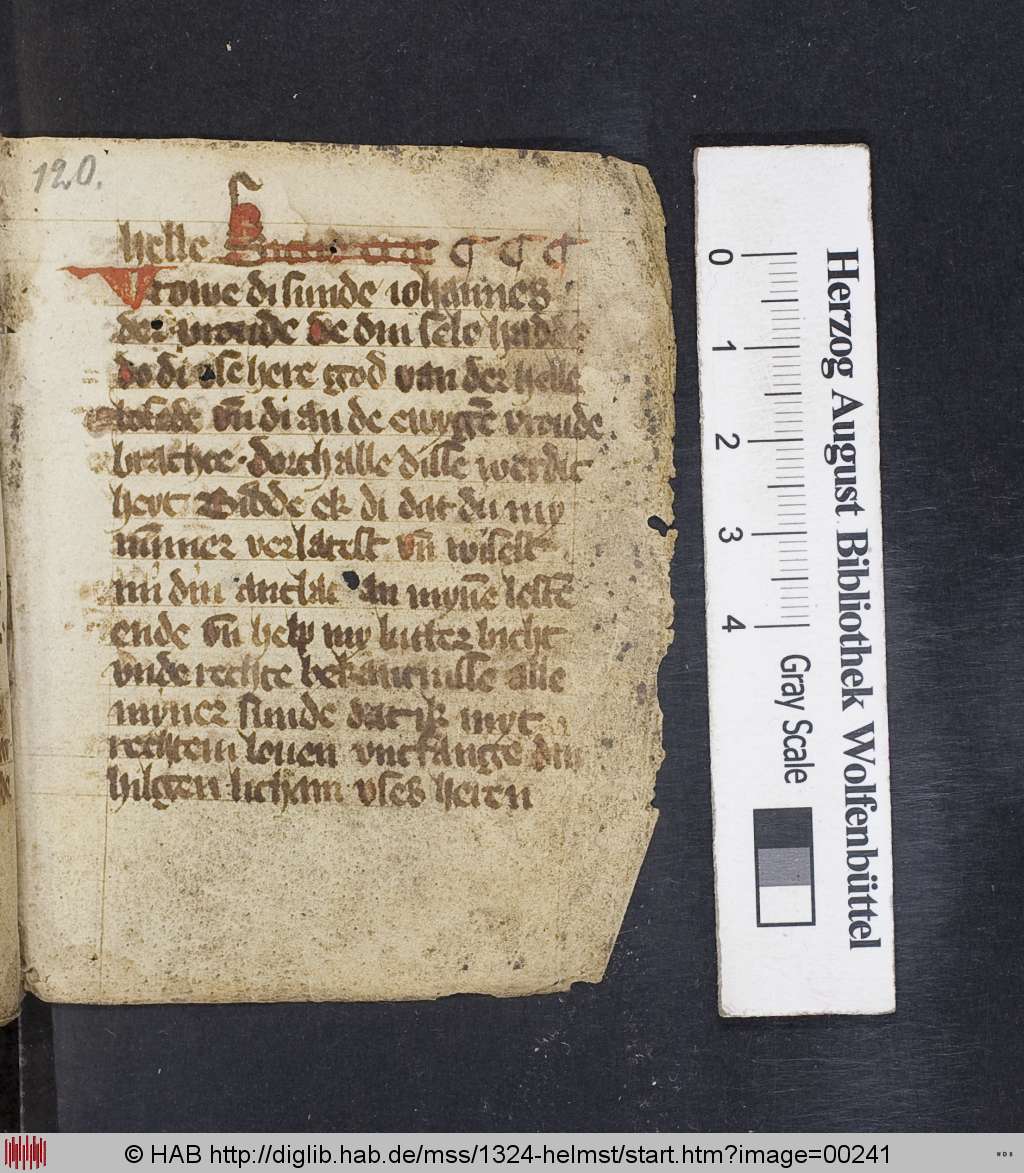 120.
helle
Vrowe di sunde iohannes
der vroude de din sele hadde
do di vse here god van der helle
losede vn̄ di an de ewygē vroude
brachte · dorch alle disse werdic
heyt Bidde ek di dat du my
nūmer verlatest vn̄ wisest
mi din antlat an mynē lestē
ende vn̄ help my lutter bicht
vnde rechte bekātnisse alle
myner sunde dat ik myt
rechtem louen vntfange den
hilgen licham vses heren
0
1
2
3
4
Gray Scale
Herzog August Bibliothek Wolfenbüttel
© HAB http://diglib.hab.de/mss/1324-helmst/start.htm?image=00241